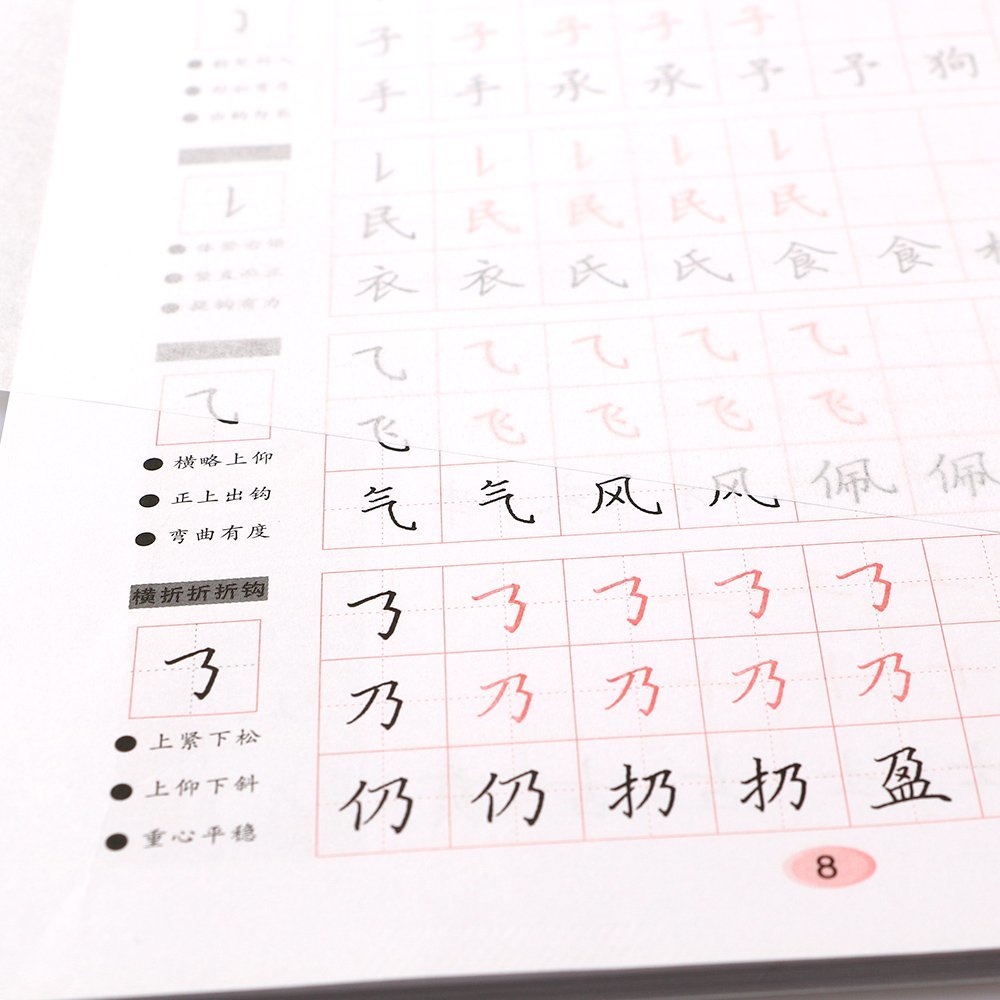 子 子 子 子 子
手 手 承 承 予 予 狗
民 民 民 民 民
衣 衣 氏 氏 食 食
提钩有力
⺄ ⺄ ⺄ ⺄ ⺄
⺄
飞 飞 飞 飞 飞
横略上仰
气 气 风 风 佩 佩
正上出钩
弯曲有度
横折折折钩
㇡ ㇡ ㇡ ㇡ ㇡
㇡
乃 乃 乃 乃 乃
上紧下松
仍 仍 扔 扔 盈
上仰下斜
重心平稳
8